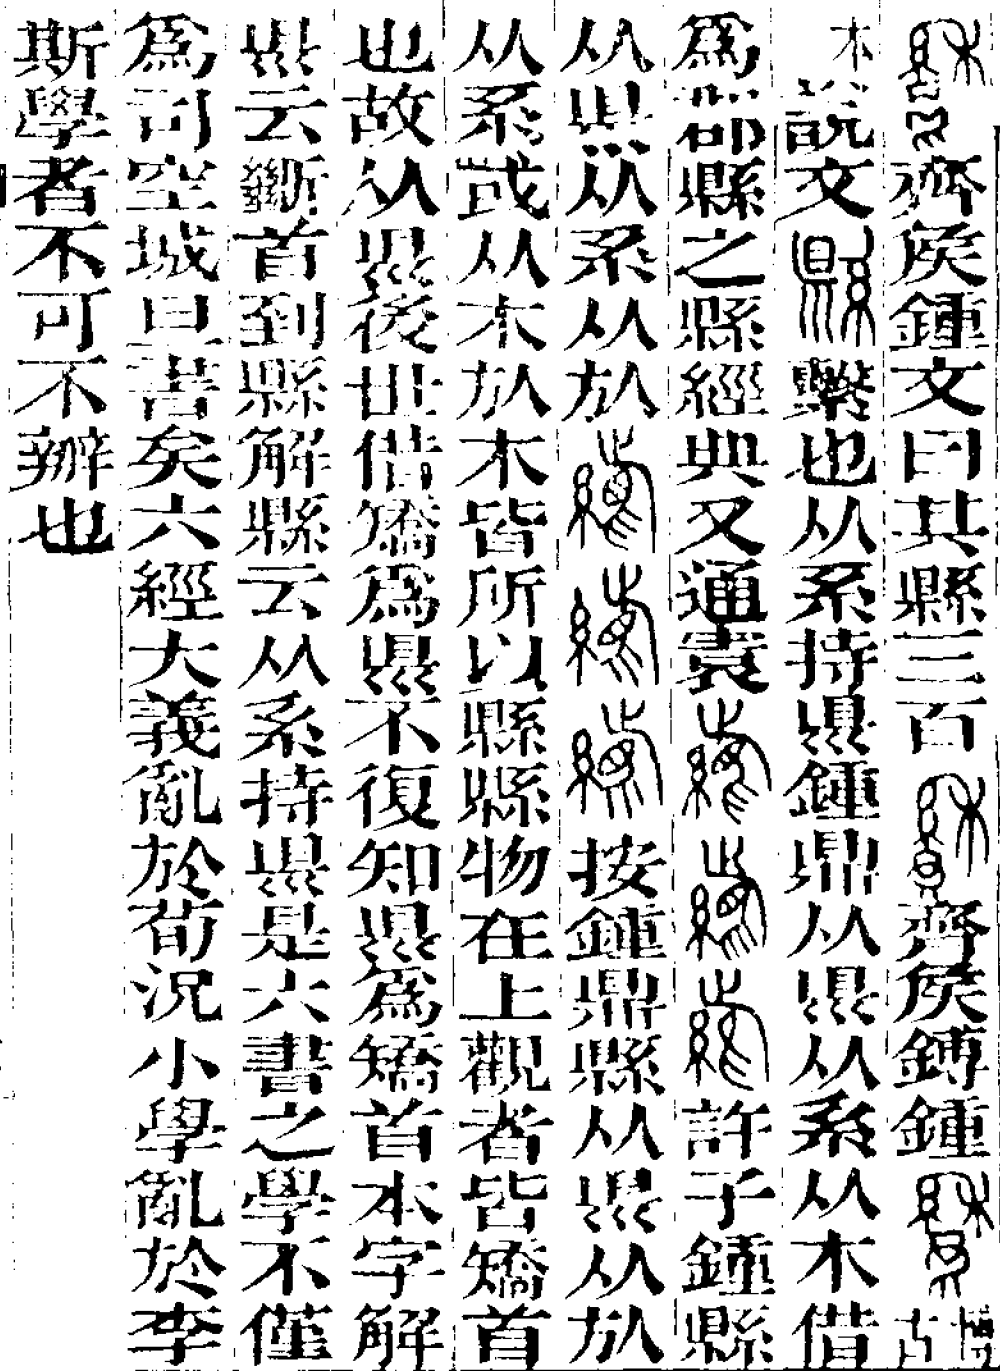 齊侯鍾文曰其縣三百 齊侯鎛鍾 古
木 說文 繫也从系持㬎鍾鼎从㬎从系从木借
爲郡縣之縣經典又通寰 許子鍾縣
从㬎从系从㫃 按鍾鼎縣从㬎从㫃
从系或从木㫃木皆所以縣縣物在上觀者皆矯首
也故从㬎後世借矯爲㬎不復知㬎爲矯首本字解
㬎云斷首到縣解縣云从系持㬎是六書之學不僅
爲司空城旦書矣六經大義亂於荀況小學亂於李
斯學者不可不辦也